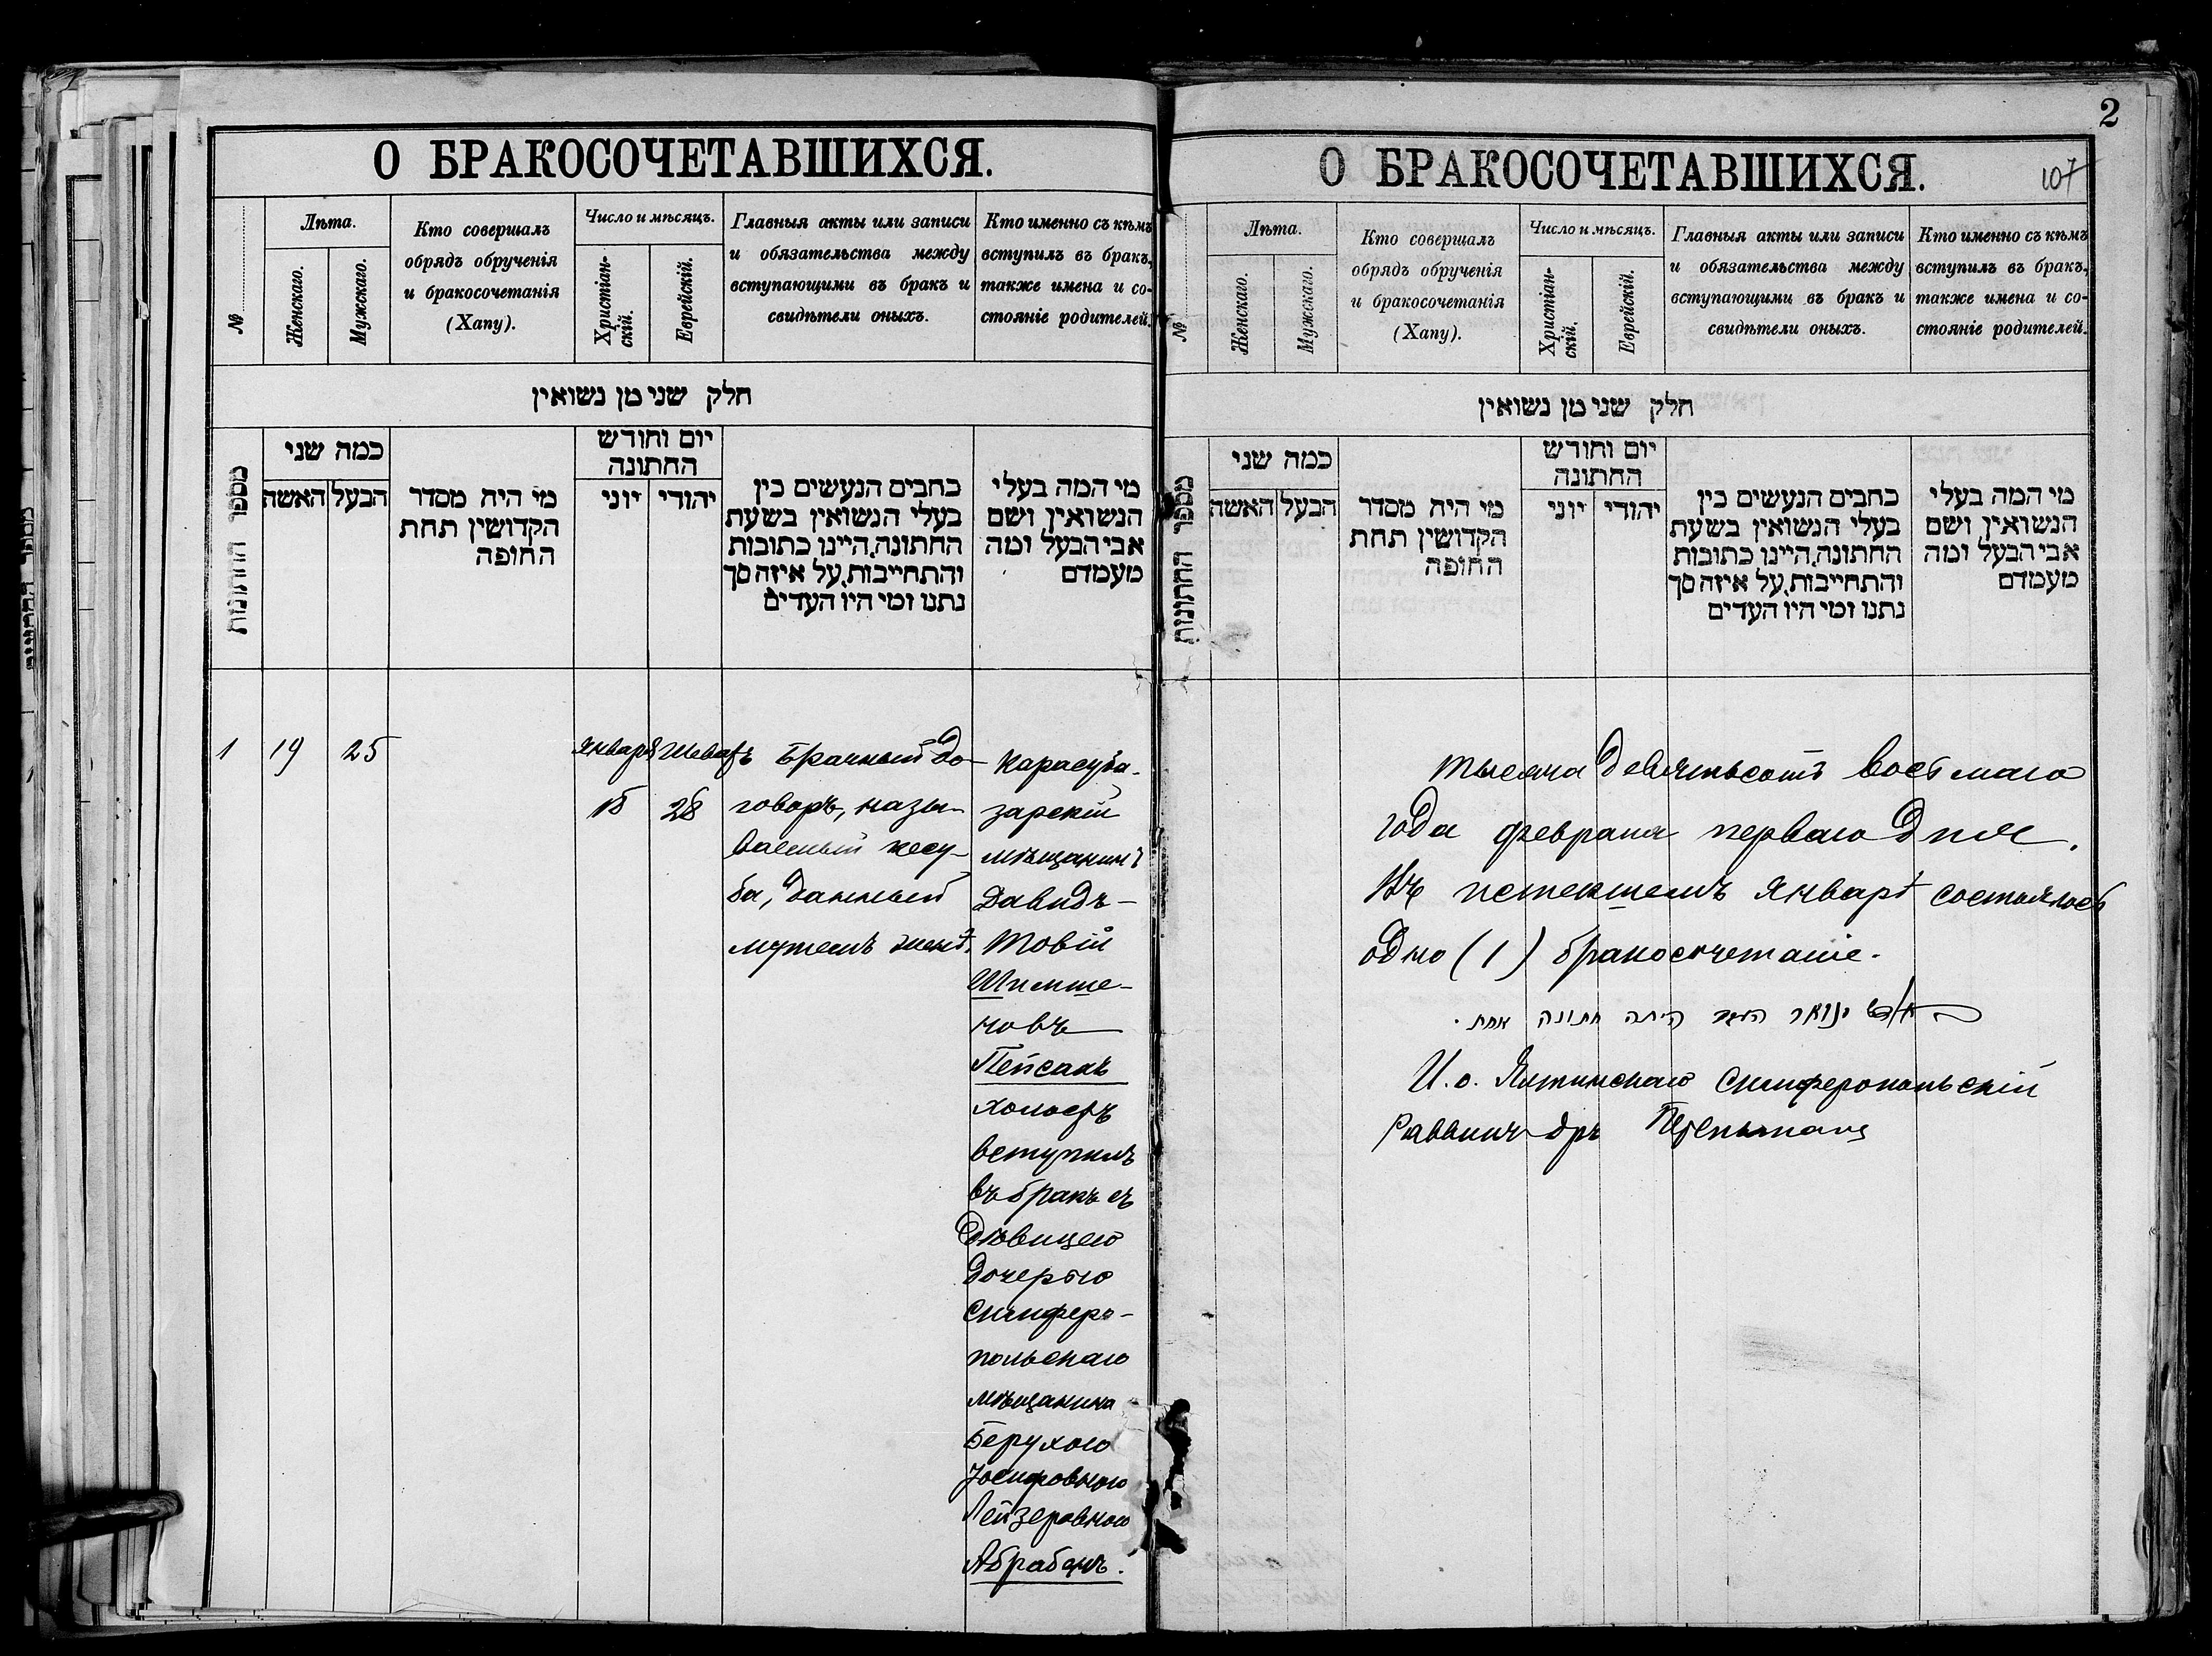 О БРАКОСОЧЕТАВШИХСЯ.
№
Лѣта.
Женскаго.
Мужскаго.
Кто совершалъ
обрядъ обрученія
и бракосочетанія
(Хапу).
Число и мѣсяцъ.
Христіан-
скій.
Еврейскій.
Главныя акты или записи
и обязательства между
вступающими въ бракъ и
свидѣтели оныхъ.
Кто именно съ кѣмъ
вступилъ въ бракъ,
также имена и со-
стояніе родителей.
חלק שני מן נשואין
מספר החתונות
כמה שני
האשה
הבעל
מי היה מסדר
הקדושין תחת
החופה
יום וחודש
החתונה
יוני
יהודי
כתבים הנעשים בין
בעלי הנשואין בשעת
החתונה, היינו כתובות
והתחייבות, על איזה סך
נתנו ומי היו העדים
מי המה בעלי
הנשואין, ושם
אבי הבעל ומה
מעמדם
1
19
25
Января
18
Шеватъ
28
Брачный до-
говоръ, назы-
ваемый кесу-
ба, данный
мужемъ женѣ.
Карасуба-
зарскій
мѣщанинъ
Давидъ-
Товій
Шимше-
новъ
Пейсахъ
холостъ
вступилъ
въ бракъ съ
дѣвицею
дочерью
симферо-
польскаго
мѣщанина
Берухою
Іосифовною
Лейзеровною
Абрабенъ.
2
107
О БРАКОСОЧЕТАВШИХСЯ.
№
Лѣта.
Женскаго.
Мужскаго.
Кто совершалъ
обрядъ обрученія
и бракосочетанія
(Хапу).
Число и мѣсяцъ.
Христіан-
скій.
Еврейскій.
Главныя акты или записи
и обязательства между
вступающими въ бракъ и
свидѣтели оныхъ.
Кто именно съ кѣмъ
вступилъ въ бракъ,
также имена и со-
стояніе родителей.
חלק שני מן נשואין
מספר החתונות
כמה שני
האשה
הבעל
מי היה מסדר
הקדושין תחת
החופה
יום וחודש
החתונה
יוני
יהודי
כתבים הנעשים בין
בעלי הנשואין בשעת
החתונה, היינו כתובות
והתחייבות, על איזה סך
נתנו ומי היו העדים
מי המה בעלי
הנשואין, ושם
אבי הבעל ומה
מעמדם
тысяча девятьсотъ восьмаго
года февраля перваго дня.
Въ истекшемъ январѣ состоялось
одно (1) бракосочетаніе.
ינואר היתה חתונה אחת.
И. о. Ялтинскаго симферопольскій
Раввинъ дръ